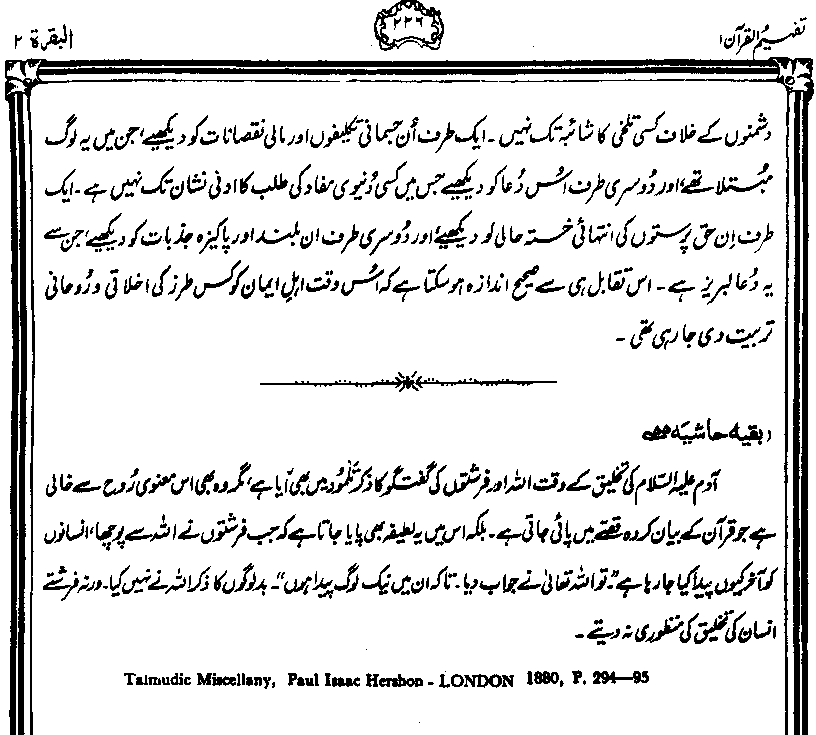 تفہیم القرآن ۱
۲۲۶
البقرۃ ۲
دشمنوں کے خلاف کسی تلخی کا شائبہ تک نہیں۔ ایک طرف اُن جسمانی تکلیفوں اور مالی نقصانات کو دیکھیے، جن میں یہ لوگ
مُبتلا تھے، اور دُوسری طرف اُس دُعا کو دیکھیے جس میں کسی دُنیوی مفاد کی طلب کا ادنیٰ نشان تک نہیں ہے۔ ایک
طرف اِن حق پرستوں کی انتہائی خستہ حالی کو دیکھیے، اور دُوسری طرف ان بلند اور پاکیزہ جذبات کو دیکھیے، جن سے
یہ دُعا لبریز ہے۔ اس تقابل ہی سے صحیح اندازہ ہو سکتا ہے کہ اُس وقت اہلِ ایمان کو کس طرز کی اخلاقی و رُوحانی
تربیت دی جا رہی تھی۔
(بقیہ حاشیہ
آدم علیہ السّلام کی تخلیق کے وقت اللہ اور فرشتوں کی گفتگو کا ذکر تَلْمُود میں بھی آیا ہے، مگر وہ بھی اس معنوی رُوح سے خالی
ہے جو قرآن کے بیان کردہ قصّے میں پائی جاتی ہے۔ بلکہ اس میں یہ لطیفہ بھی پایا جاتا ہے کہ جب فرشتوں نے اللہ سے پوچھا، انسانوں
کو آخر کیوں پیدا کیا جا رہا ہے“۔ تو اللہ تعالیٰ نے جواب دیا۔ ”تاکہ ان میں نیک لوگ پیدا ہوں“۔ بد لوگوں کا ذکر اللہ نے نہیں کیا۔ ورنہ فرشتے
انسان کی تخلیق کی منظوری نہ دیتے۔
Talmudic Miscellany, Paul Isaac Hershon - LONDON 1880, P. 294—95